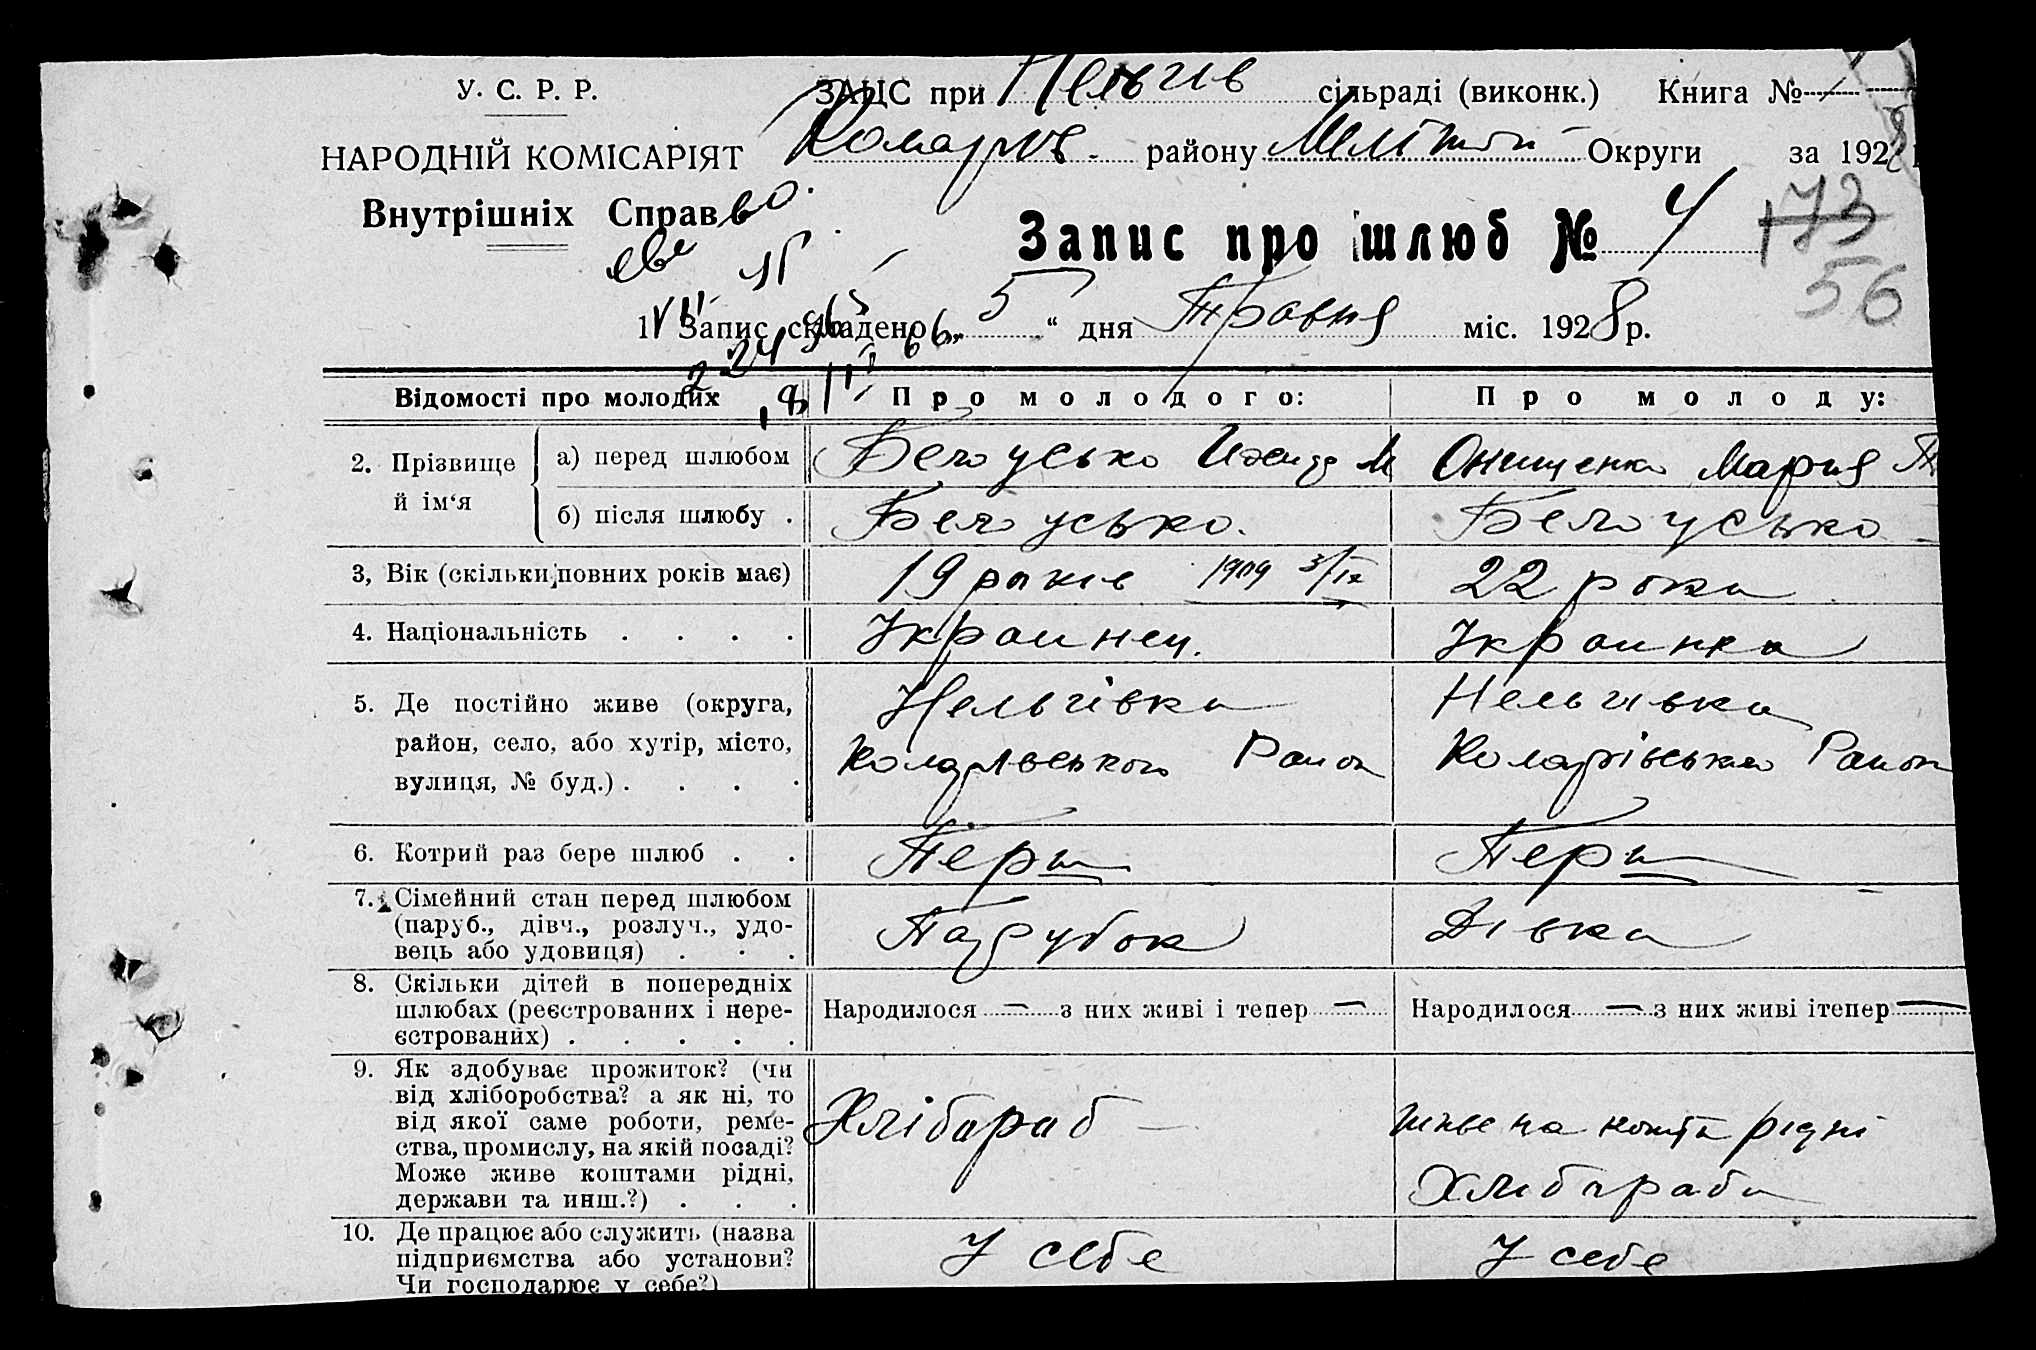 У. С. Р. Р.
ЗАЦС при Нельгів сільраді (виконк.) Книга № 1
НАРОДНІЙ КОМІСАРІЯТ
району Округи за 1928
Внутрішніх Справ
Запис про шлюб № 4
173
56
1 Запис складено „ 5 “ дня Травня міс. 1928 р.
Відомості про молодих
Про молодого:
Про молоду:
2. Прізвище й ім‘я
а) перед шлюбом
Белоусько М
Онищенко Мария Т
б) після шлюбу .
Белоусько.
Белоусько
3, Вік (скільки повних років має)
19 років 1909 3/IV
22 роки
4. Національність . . . .
Украинец.
Украинка
5. Де постійно живе (округа,
район, село, або хутір, місто,
вулиця, № буд.) . . . .
Нельгівка
Коларівського Район
Нельгивка
Коларівсько Район
6. Котрий раз бере шлюб . .
Перш
Перш
7. Сімейний стан перед шлюбом
(паруб., дівч., розлуч., удо-
вець або удовиця) . . .
Парубок
Дівка
8. Скільки дітей в попередніх
шлюбах (реєстрованих і нере-
єстрованих) . . . . .
Народилося — з них живі і тепер —
Народилося — з них живі ітепер —
9. Як здобуває прожиток? (чи
від хліборобства? а як ні, то
від якої саме роботи, реме-
ства, промислу, на якій посаді?
Може живе коштами рідні,
держави та инш.?) . . .
Хлібараб —
на кошти рідні
Хлибараби
10. Де працює або служить (назва
підприємства або установи?
Чи господарює у себе?)
У себе
У себе